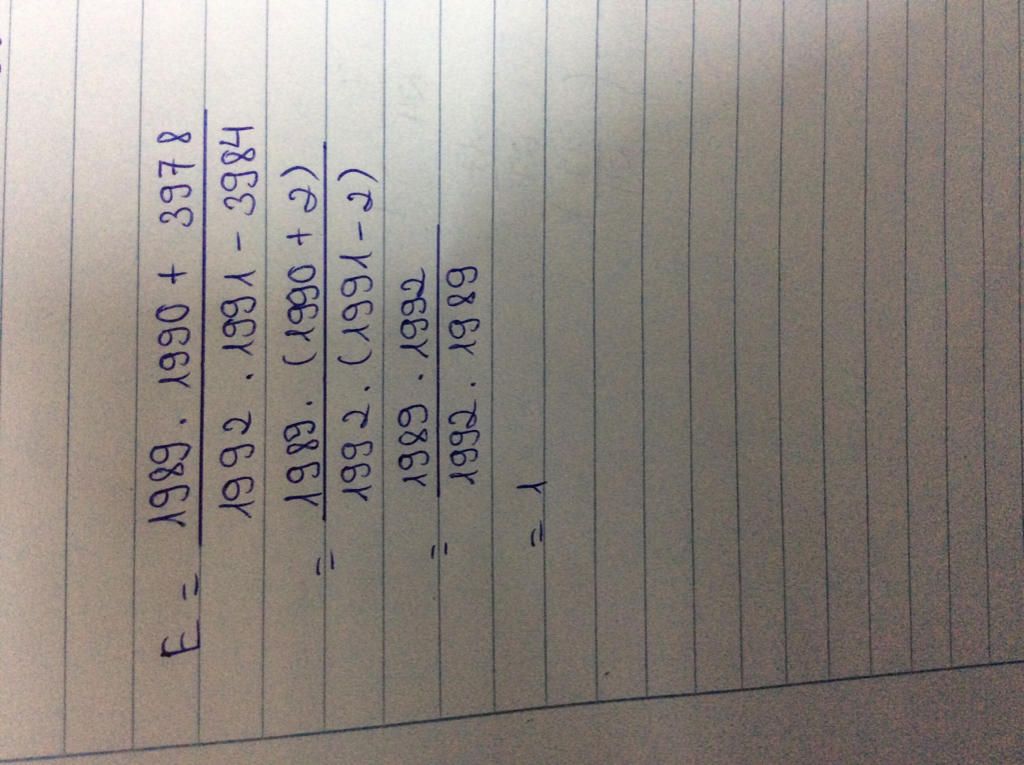 E = 1989 . 1990 + 3978
1992 . 1991 - 3984
= 1989 . (1990 + 2)
1992 . (1991 - 2)
= 1989 . 1992
1992 . 1989
= 1